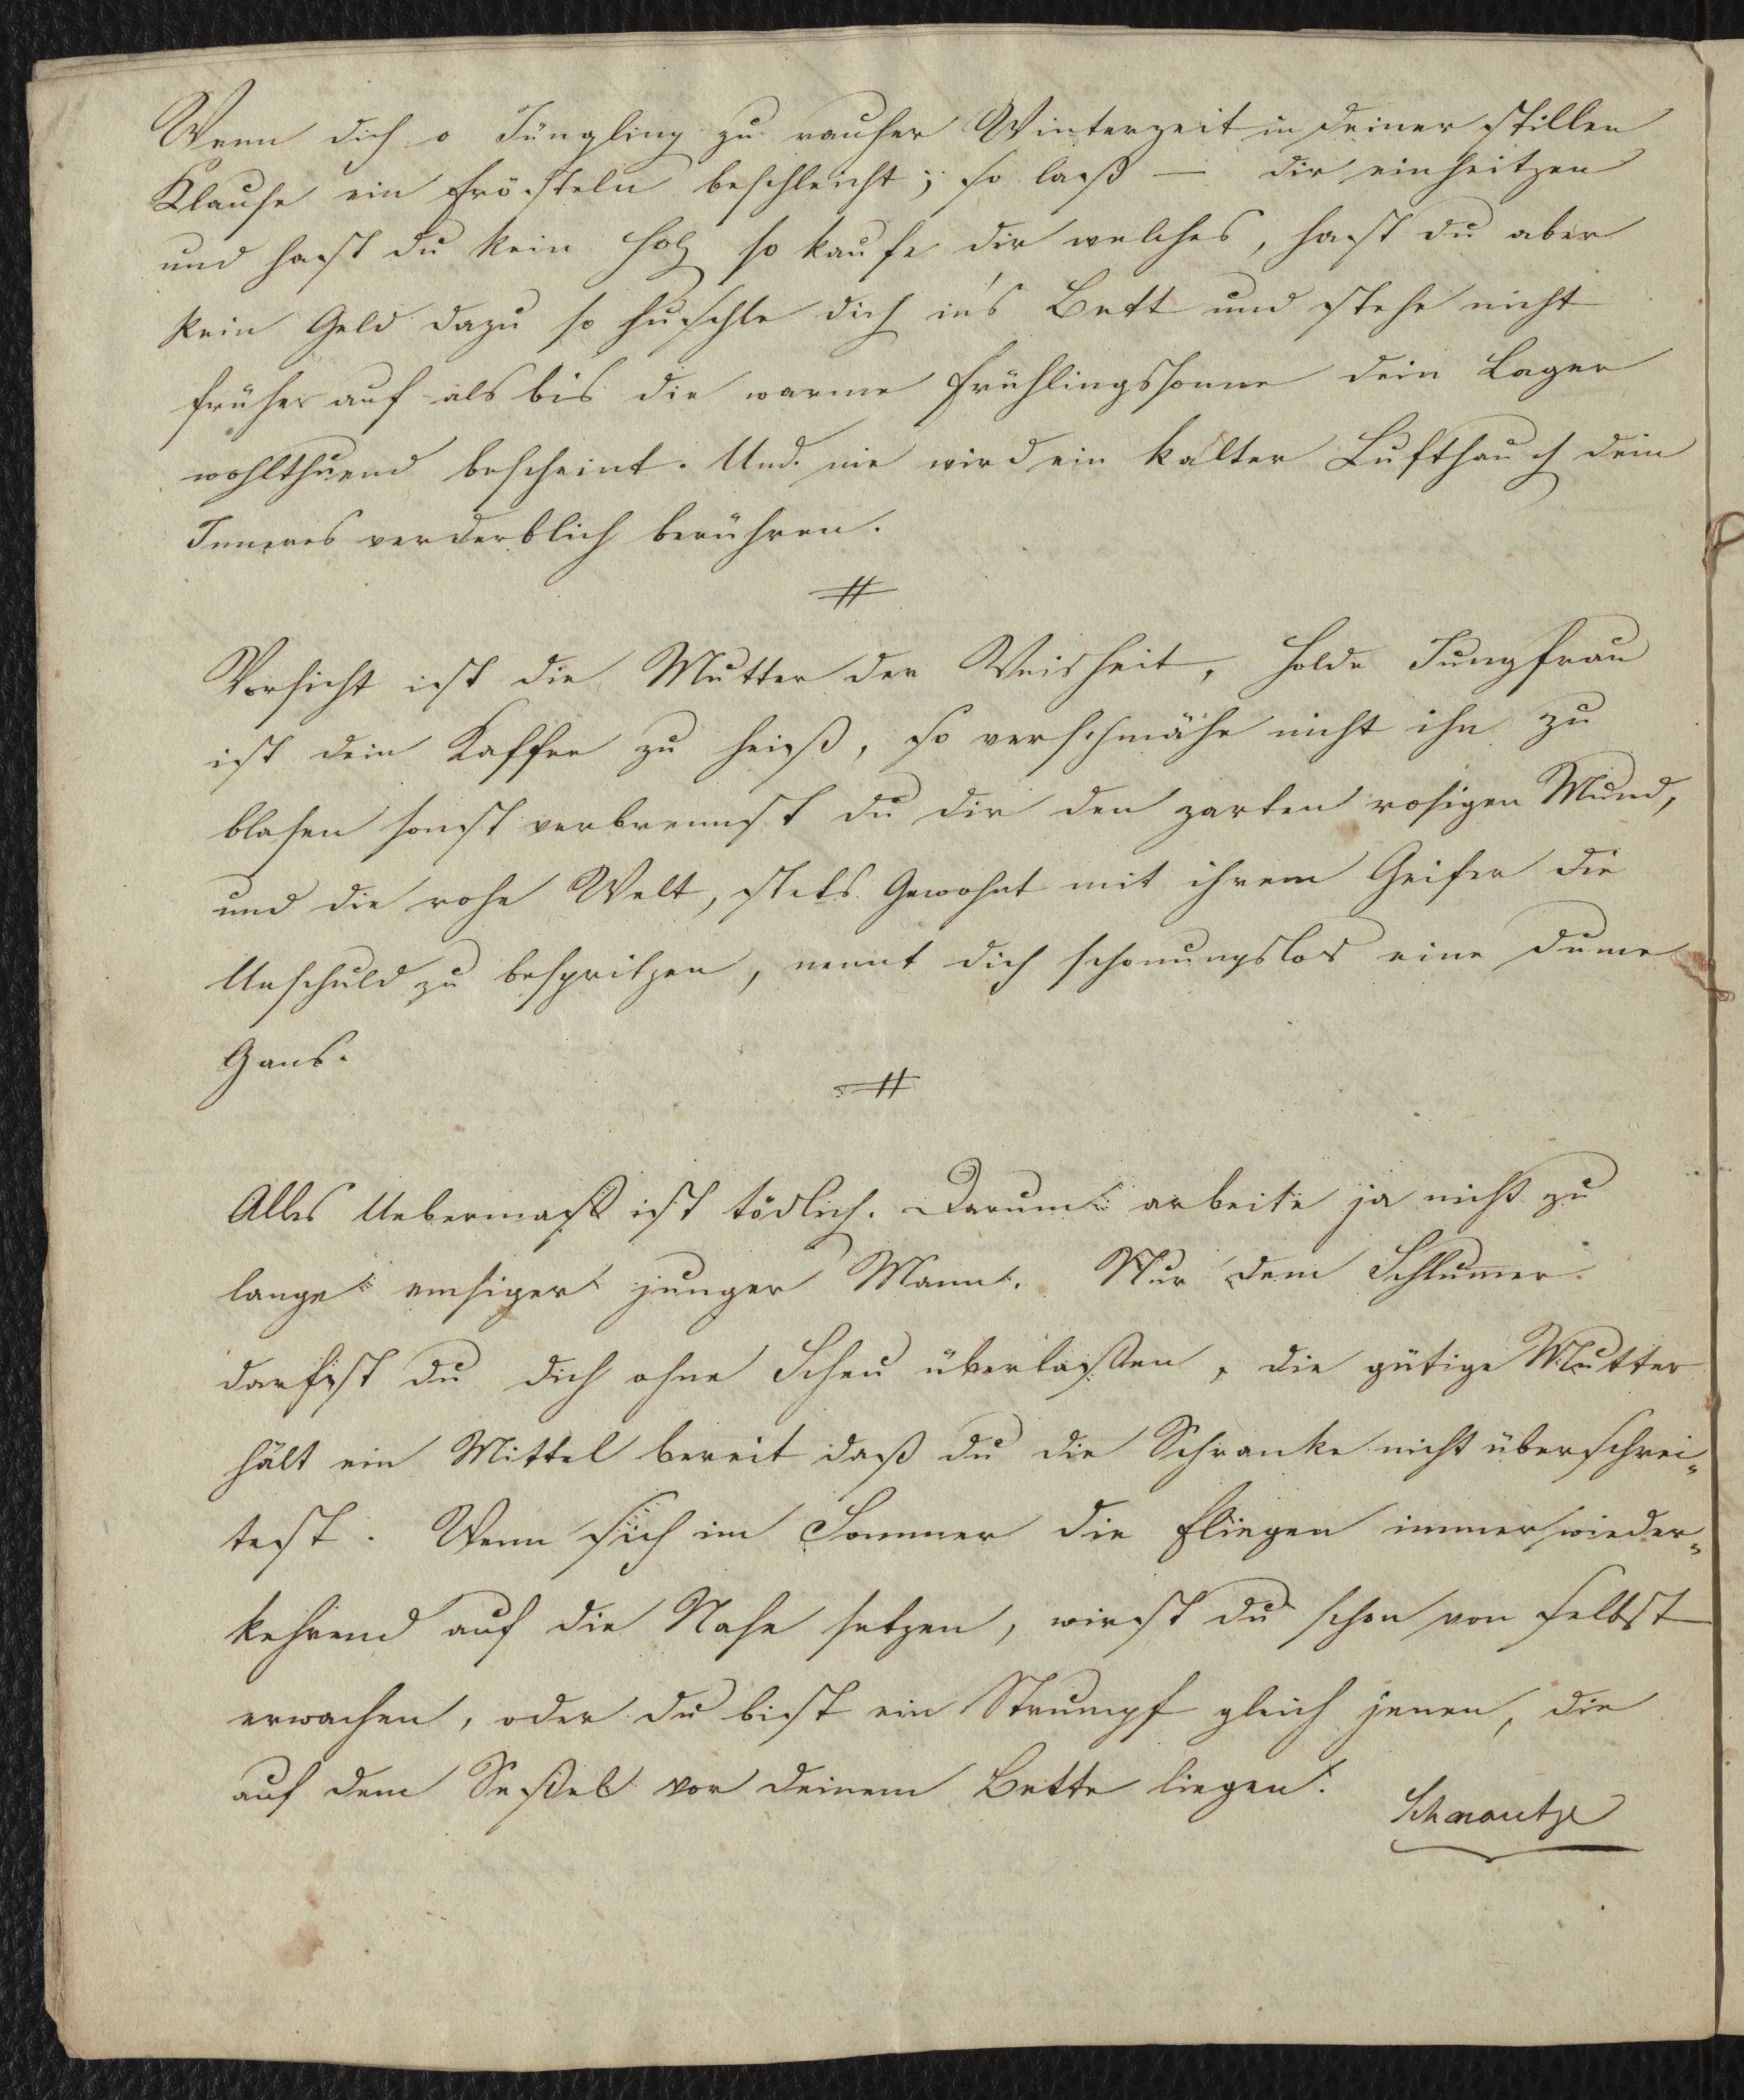 Wenn dich o Jüngling zu rauher Winterzeit in deiner stillen
Klause ein frösteln beschleicht; so laß — dir einheitzen
und hast du kein Holz so kaufe dir welches, hast du aber
kein Geld dazu so huschle dich in's Bett und stehe nicht
früher auf als bis die warme Frühlingssonne dein Lager
wohlthuend bescheint. Und nie wird ein kalter Lufthauch dein
Inneres verderblich berühren.
#
Vorsicht ist die Mutter der Weisheit, holde Jungfrau
ist dein Kaffee zu heiß, so verschmähe nicht ihn zu
blasen sonst verbrennst du dir den zarten rosigen Mund,
und die rohe Welt, stets Gewohnt mit ihrem Geifer die
Unschuld zu bespritzen, nennt dich schonungslos eine dum̅e
Gans.
#
Alles Uebermaß ist tödlich. Darum arbeite ja nicht zu
lange emsiger junger Mann. Nur dem Schlum̅er
darfst du dich ohne Scheu überlaßen, die gütige Mutter
hält ein Mittel bereit daß du die Schranke nicht überschrei„
test. Wenn sich im Sommer die Fliegen immer wieder„
kehrend auf die Nase setzen, wirst du schon von selbst
erwachen, oder du bist ein Strumpf gleich jenen, die
auf dem Seßel vor deinem Bette liegen.
Schnautze